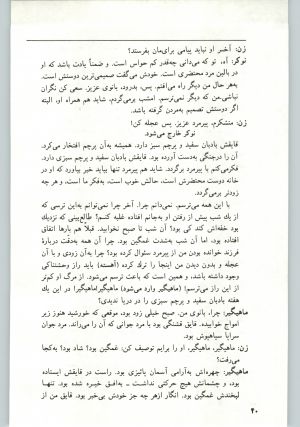 زن: آخر او نباید پیامی برای‌مان بفرستد؟
نوکر: آه، تو که می‌دانی چه‌قدر کم حواس است. و ضمناً یادت باشد که او
در بالین مرد محتضری است. خودش می‌گفت صمیمی‌ترین دوستش است.
به‌هر حال من دیگر راه می‌افتم. پس، بدرود، بانوی عزیز. سعی کن نگران
نباشی. من که دیگر نمی‌ترسم. امشب برمی‌گردم، شاید هم همراه او، البته
اگر دوستش تصمیم به‌مردن گرفته باشد.
زن: متشکرم، پیرمرد عزیز. پس عجله کن!
نوکر خارج می‌شود
قایقش بادبان سفید و پرچم سبز دارد. همیشه به‌آن پرچم افتخار می‌کرد.
آن را درجنگی به‌دست آورده بود. قایقش بادبان سفید و پرچم سبزی دارد.
فکرمی‌کنم با پیرمرد برگردد. شاید هم پیرمرد تنها بیاید خبر بیاورد که او در
خانه دوست محتضرش است، حالش خوب است، به‌فکر ما است، و هر چه
زودتر برمی‌گردد.
با این همه می‌ترسم. نمی‌دانم چرا. آخر چرا نمی‌توانم به‌این ترسی که
از یك شب پیش از رفتن او به‌جانم افتاده غلبه کنم؟ طالع‌بینی که نزدیك
بود خفه‌اش کند کی بود؟ آن شب تا صبح نخوابید. قبلاً هم بارها اتفاق
افتاده بود، اما آن شب به‌شدت غمگین بود. چرا آن همه به‌دقت دربارهٔ
فرزند خوانده بودن من از پیرمرد سئوال کرده بود؟ چرا به‌آن زودی و با آن
عجله و بدون دیدن من اینجا را ترك کرده (آهسته) باید راز وحشتناکی
وجود داشته باشد، و همین است که باعث ترسم می‌شود. از مرگ او کم‌تر
از این راز می‌ترسم! (ماهیگیر وارد می‌شود) ماهیگیر!ماهیگیر! در این یك
هفته بادبان سفید و پرچم سبزی را در دریا ندیدی؟
ماهیگیر: چرا، بانوی من. صبح خیلی زود بود، موقعی که خورشید هنوز زیر
امواج خوابیده. قایق قشنگی بود با مرد جوانی که آن را می‌راند. مرد جوان
سراپا سیاهپوش بود.
زن: ماهیگیر، ماهیگیر، او را برایم توصیف کن: غمگین بود؟ شاد بود؟ به‌کجا
می‌رفت؟
ماهیگیر: چهره‌اش به‌آرامی آسمان پائیزی بود. راست در قایقش ایستاده
بود، و چشمانش هیچ حرکتی نداشت ـ به‌افق خیره شده بود. تنها
لبخندش غمگین بود. انگار ازهر چه جز خودش بی‌خبر بود. قایق از من
۴۰